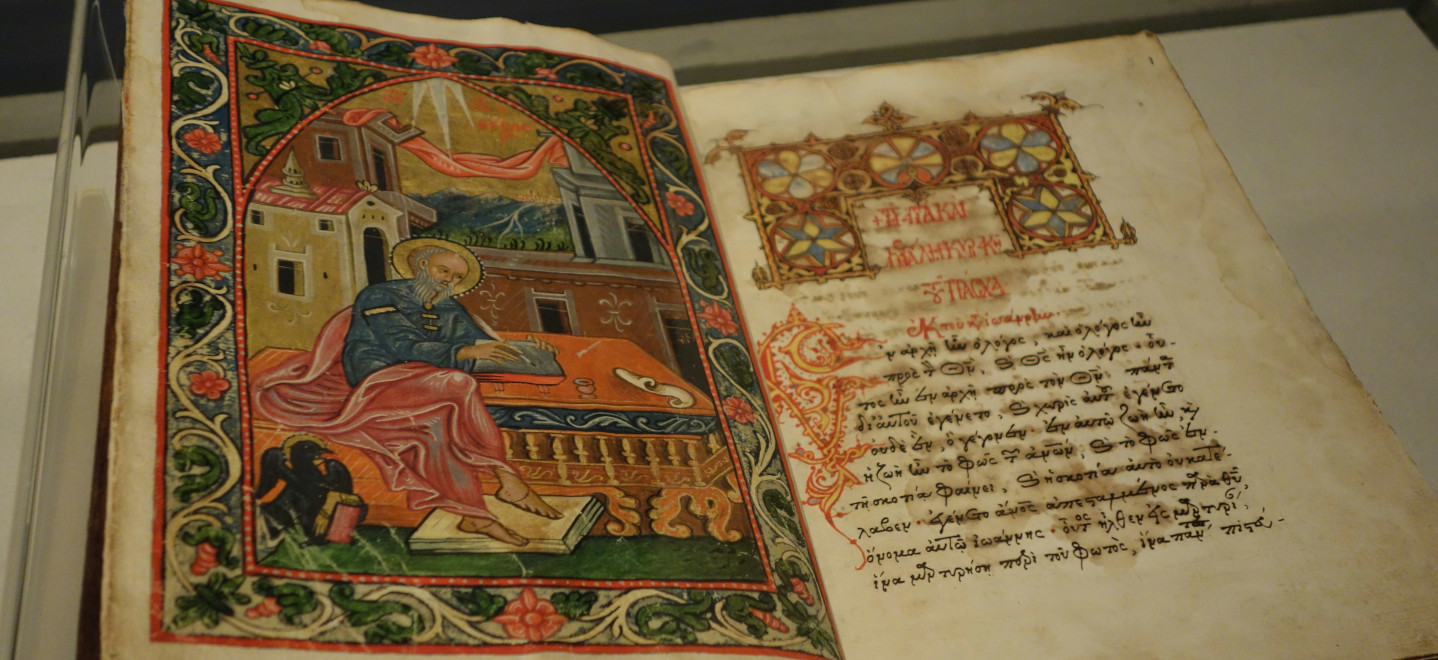 μεγάλη κυριακῆ
τοῦ ΠΑΣΧΑ
Ἐκ τοῦ κτ ἰωάννην
Ἐν ἀρχῇ ἦν ὁ λόγος, καὶ ὁ λόγος ἦν
πρὸς τ Θν, ϗ Θς ἦν ὁ λόγος· οὗ-
τος ἦν ἐν ἀρχῇ πρὸς τὸν Θν, πάντ
δι' αὐτοῦ ἐγένετο· ϗ χωρὶς αὐτ ἐγένετο
οὐδὲ ἕν, ὃ γέγονεν· ἐν αὐτῷ ζωὴ ἦν ϗ
ἡ ζωὴ ἦν τὸ φῶς τ ἀνῶν, ϗ τὸ φῶς ἐν
τῇ σκοτίᾳ φαίνει, ϗ ἡ σκοτία αὐτὸ οὐ κατέ-
λαβεν· ἐγένετο ἄνος ἀπεσταλμένος πρὰ Θῦ,
ὄνομα αὐτῷ ἰωάννης· οὗτος ἦλθεν εἰς μρτυρί,
ἵνα μρτυρήσῃ περὶ τοῦ φωτὸς, ἵνα παντ πιστεύ-